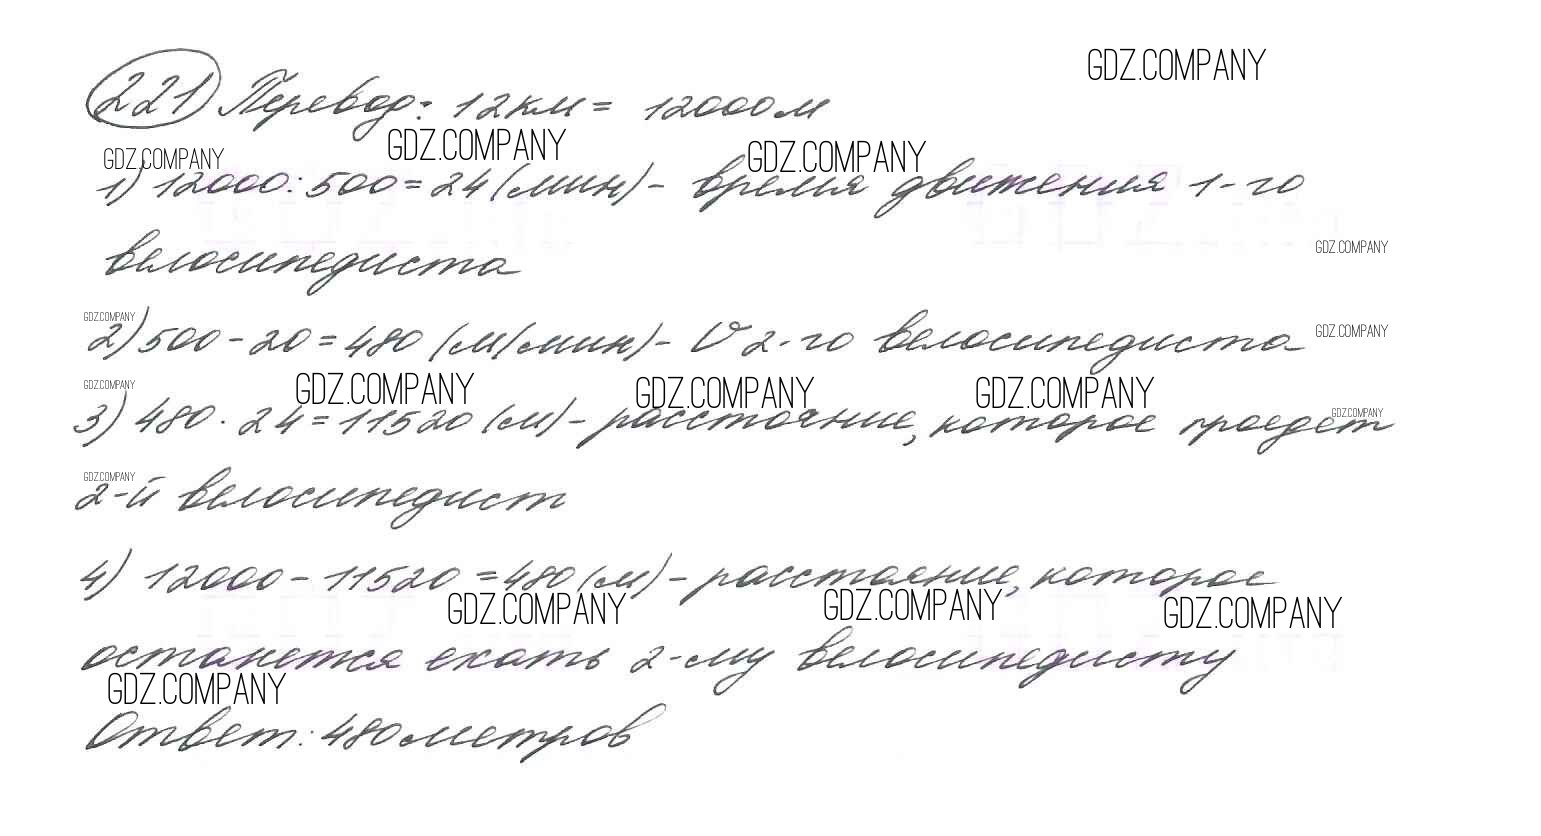 GDZ.COMPANY
221 Перевод: 12км = 12000м
GDZ.COMPANY GDZ.COMPANY GDZ.COMPANY
1) 12000:500=24(мин)- время движения 1-го
GDZ.COMPANY
велосипедиста
GDZ.COMPANY
2)500-20=480 (м/мин)- V 2-го велосипедиста GDZ.COMPANY
GDZ.COMPANY GDZ.COMPANY GDZ.COMPANY GDZ.COMPANY
GDZ.COMPANY
3) 480 · 24=11520(м)- расстояние, которое проедет
GDZ.COMPANY
2-й велосипедист
4) 12000-11520=480(м)- расстояние, которое
GDZ.COMPANY GDZ.COMPANY GDZ.COMPANY
останется ехать 2-му велосипедисту
GDZ.COMPANY
Ответ: 480 метров